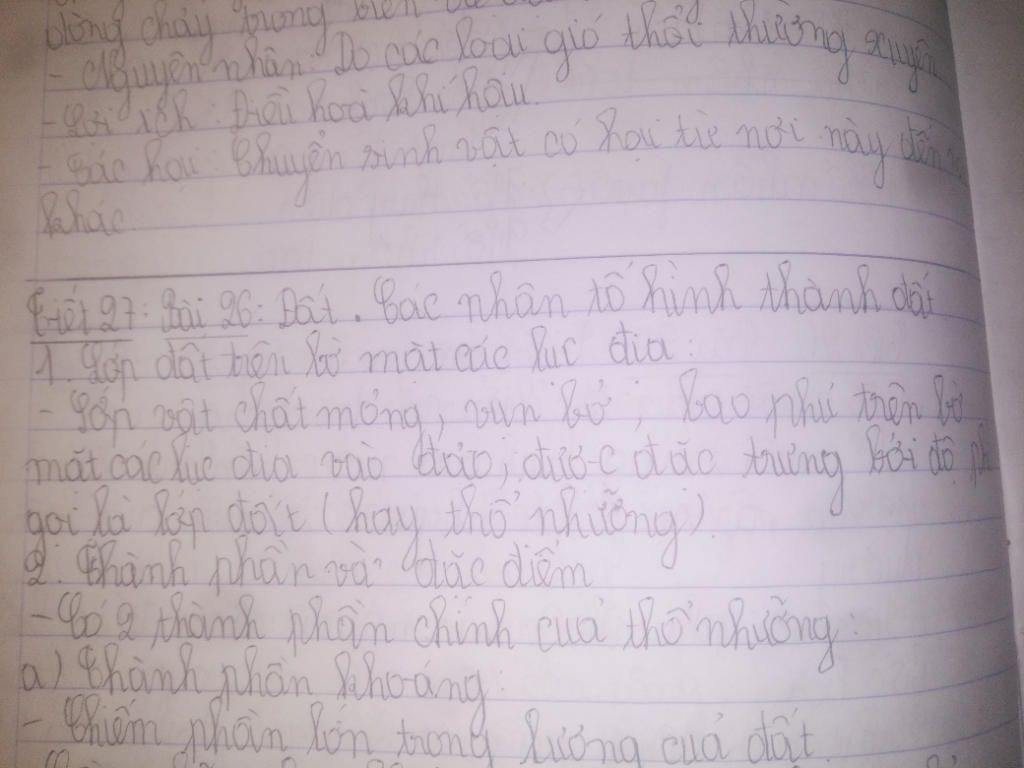 dòng chảy trong biển
- Nguyên nhân: Do các loại gió thổi thường xuyên
- Lợi ích: Điều hoà khí hậu.
- Tác hại: Chuyển sinh vật có hại từ nơi này đến
khác.
Tiết 27: Bài 26: Đất. Các nhân tố hình thành đất
1. Lớp đất trên bề mặt các lục địa:
- Lớp vật chất mỏng, vụn bở, bao phủ trên bề
mặt các lục địa vào đảo, được đặc trưng bởi độ
gọi là lớp đất (hay thổ nhưỡng).
2. Thành phần và đặc điểm
- Có 2 thành phần chính của thổ nhưỡng:
a) Thành phần khoáng:
- Chiếm phần lớn trong lượng của đất.